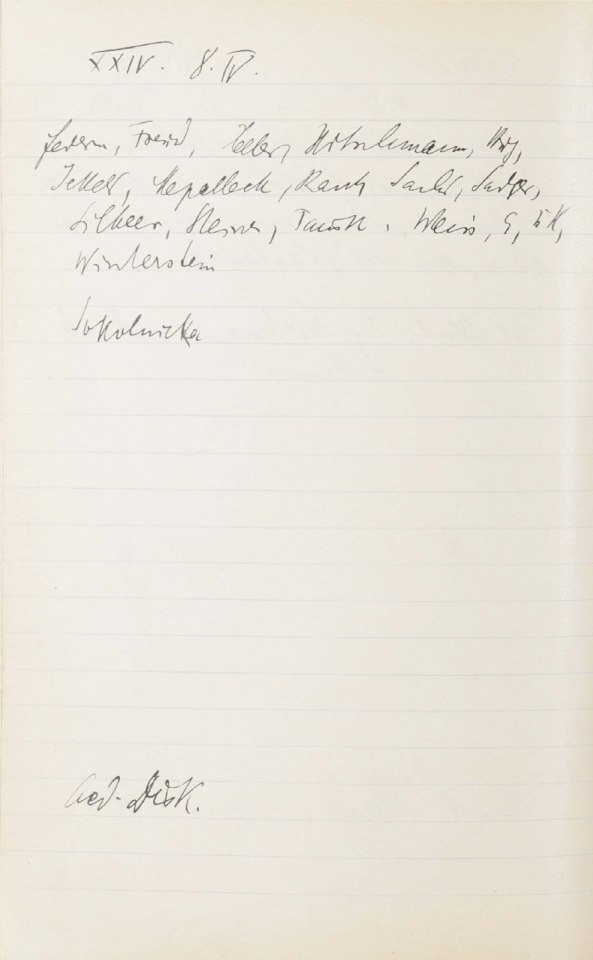 XXIV. 8. IV.
Federn, Freud, Heller, Hitschmann, Hug,
Jekels, Rank, Sachs, Sadger,
Silberer, Steiner, Tausk. Weiss,
Winterstein
Sokolnicka
Disk.